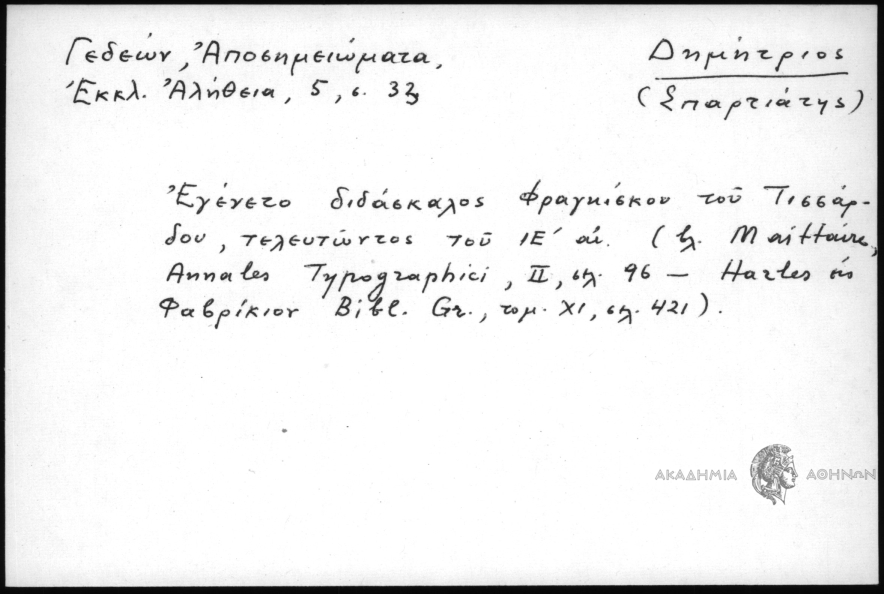 Γεδεών, Ἀποσημειώματα,
Ἐκκλ. Ἀλήθεια, 5, σ. 32
Δημήτριος
(Σπαρτιάτης)
Ἐγένετο διδάσκαλος Φραγκίσκου τοῦ Τισσάρ-
δου, τελευτῶντος τοῦ ΙΕ΄ αἰ. (βλ. Maittaire,
Annales Typographici, II, σελ. 96 — Harles εἰς
Φαβρίκιον Bibl. Gr., τομ. XI, σελ. 421).
ΑΚΑΔΗΜΙΑ ΑΘΗΝΩΝ